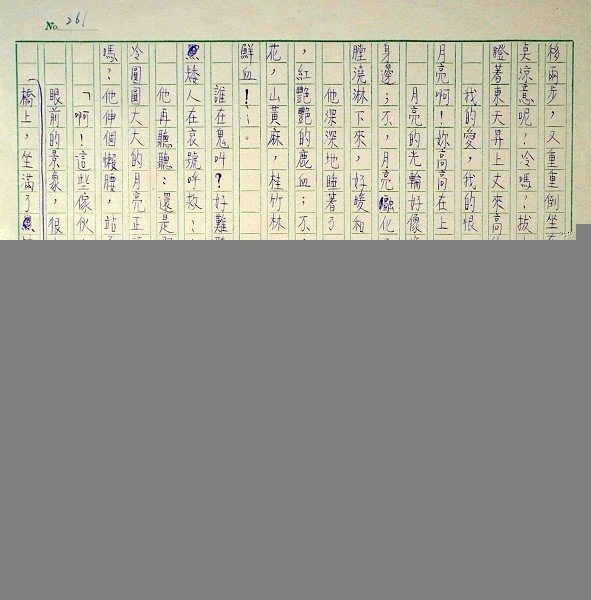 No. 261
移兩步，又重重倒坐
真涼意呢？冷嗎？拔
瞪著東天昇上丈來高
我的愛，我的恨
月亮啊！妳高高在上
月亮的光輪好像
身邊；不，月亮融化
膛澆淋下來，好暖和
他深深地睡著了
，紅艷艷的鹿血；不，
花，山黃麻，桂竹林
鮮血！…。
誰在鬼叫？好難
黑矮人在哀號呼救…
他再聽聽：還是
冷圓圓大大的月亮正
嗎？他伸個懶腰，站
「啊！這些傢伙
眼前的景象，很
橋上，坐滿了黑